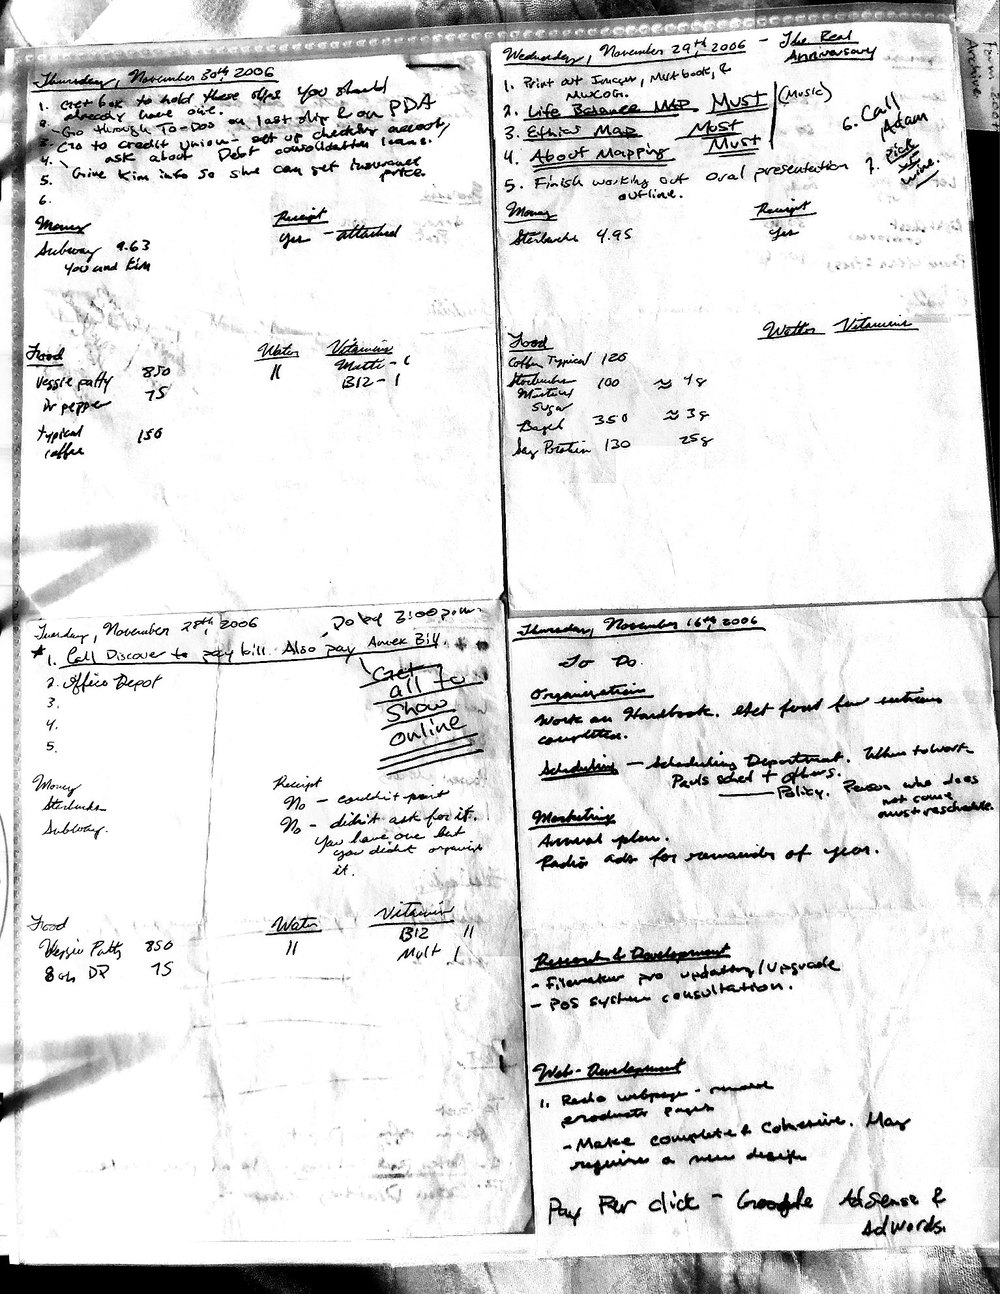 Thursday, November 30th, 2006
1. Get box to hold these slips you should
already have one.
2. Go through To-Doo on last slip & on PDA
3. Go to credit union - set up checking account,
ask about Debt consolidation loans.
4. Give Kim info so she can get insurance
price.
5.
6.
Money
Receipt
Subway 9.63
Yes - attached
You and Kim
Food
Water
Vitamins
Veggie patty 850
11
Multi - 1
Dr pepper 75
B12 - 1
typical 150
coffee
Wednesday, November 29th 2006 - The Real
Anniversary
1. Print out
2. Life Balance Map Must
(Music)
3. Ethics Map Must
4. About Mapping Must
5. Finish working out oral presentation
outline.
6. Call
Adam
7. Pick
wine.
Money
Receipt
Starbucks 4.95
Yes
Food
Water
Vitamins
Coffee Typical 120
Starbucks 100 ≈ 4g
Sugar
Bagel 350 ≈ 3g
Soy Protein 130 25g
Tuesday, November 28th, 2006
Do by 3:00 p.m.
* 1. Call Discover to pay bill. Also pay Amex Bill.
2. Office Depot
3.
4.
5.
Get
all to
Show
online
Money
Receipt
Starbucks
No - couldn't print
Subway.
No - didn't ask for it.
You have one but
you didn't organize
it.
Food
Water
Vitamin
Veggie Patty 850
11
B12 11
8 oz DP 75
Mult 1
Thursday, November 16th, 2006
To Do
Organization
Work on Handbook. Get first few sections
completed.
Scheduling - Scheduling Department. When to work
Pauls sched + others.
Policy. Person who does
not come
must reschedule.
Marketing
Annual plan.
Radio ads for remainder of year.
Research & Development
- Filemaker pro updating/upgrade
- POS system consultation.
Web-Development
1. Redo webpage - remove
products pages
- Make complete & cohesive. May
require a new design
Pay Per click - Google AdSense &
AdWords.